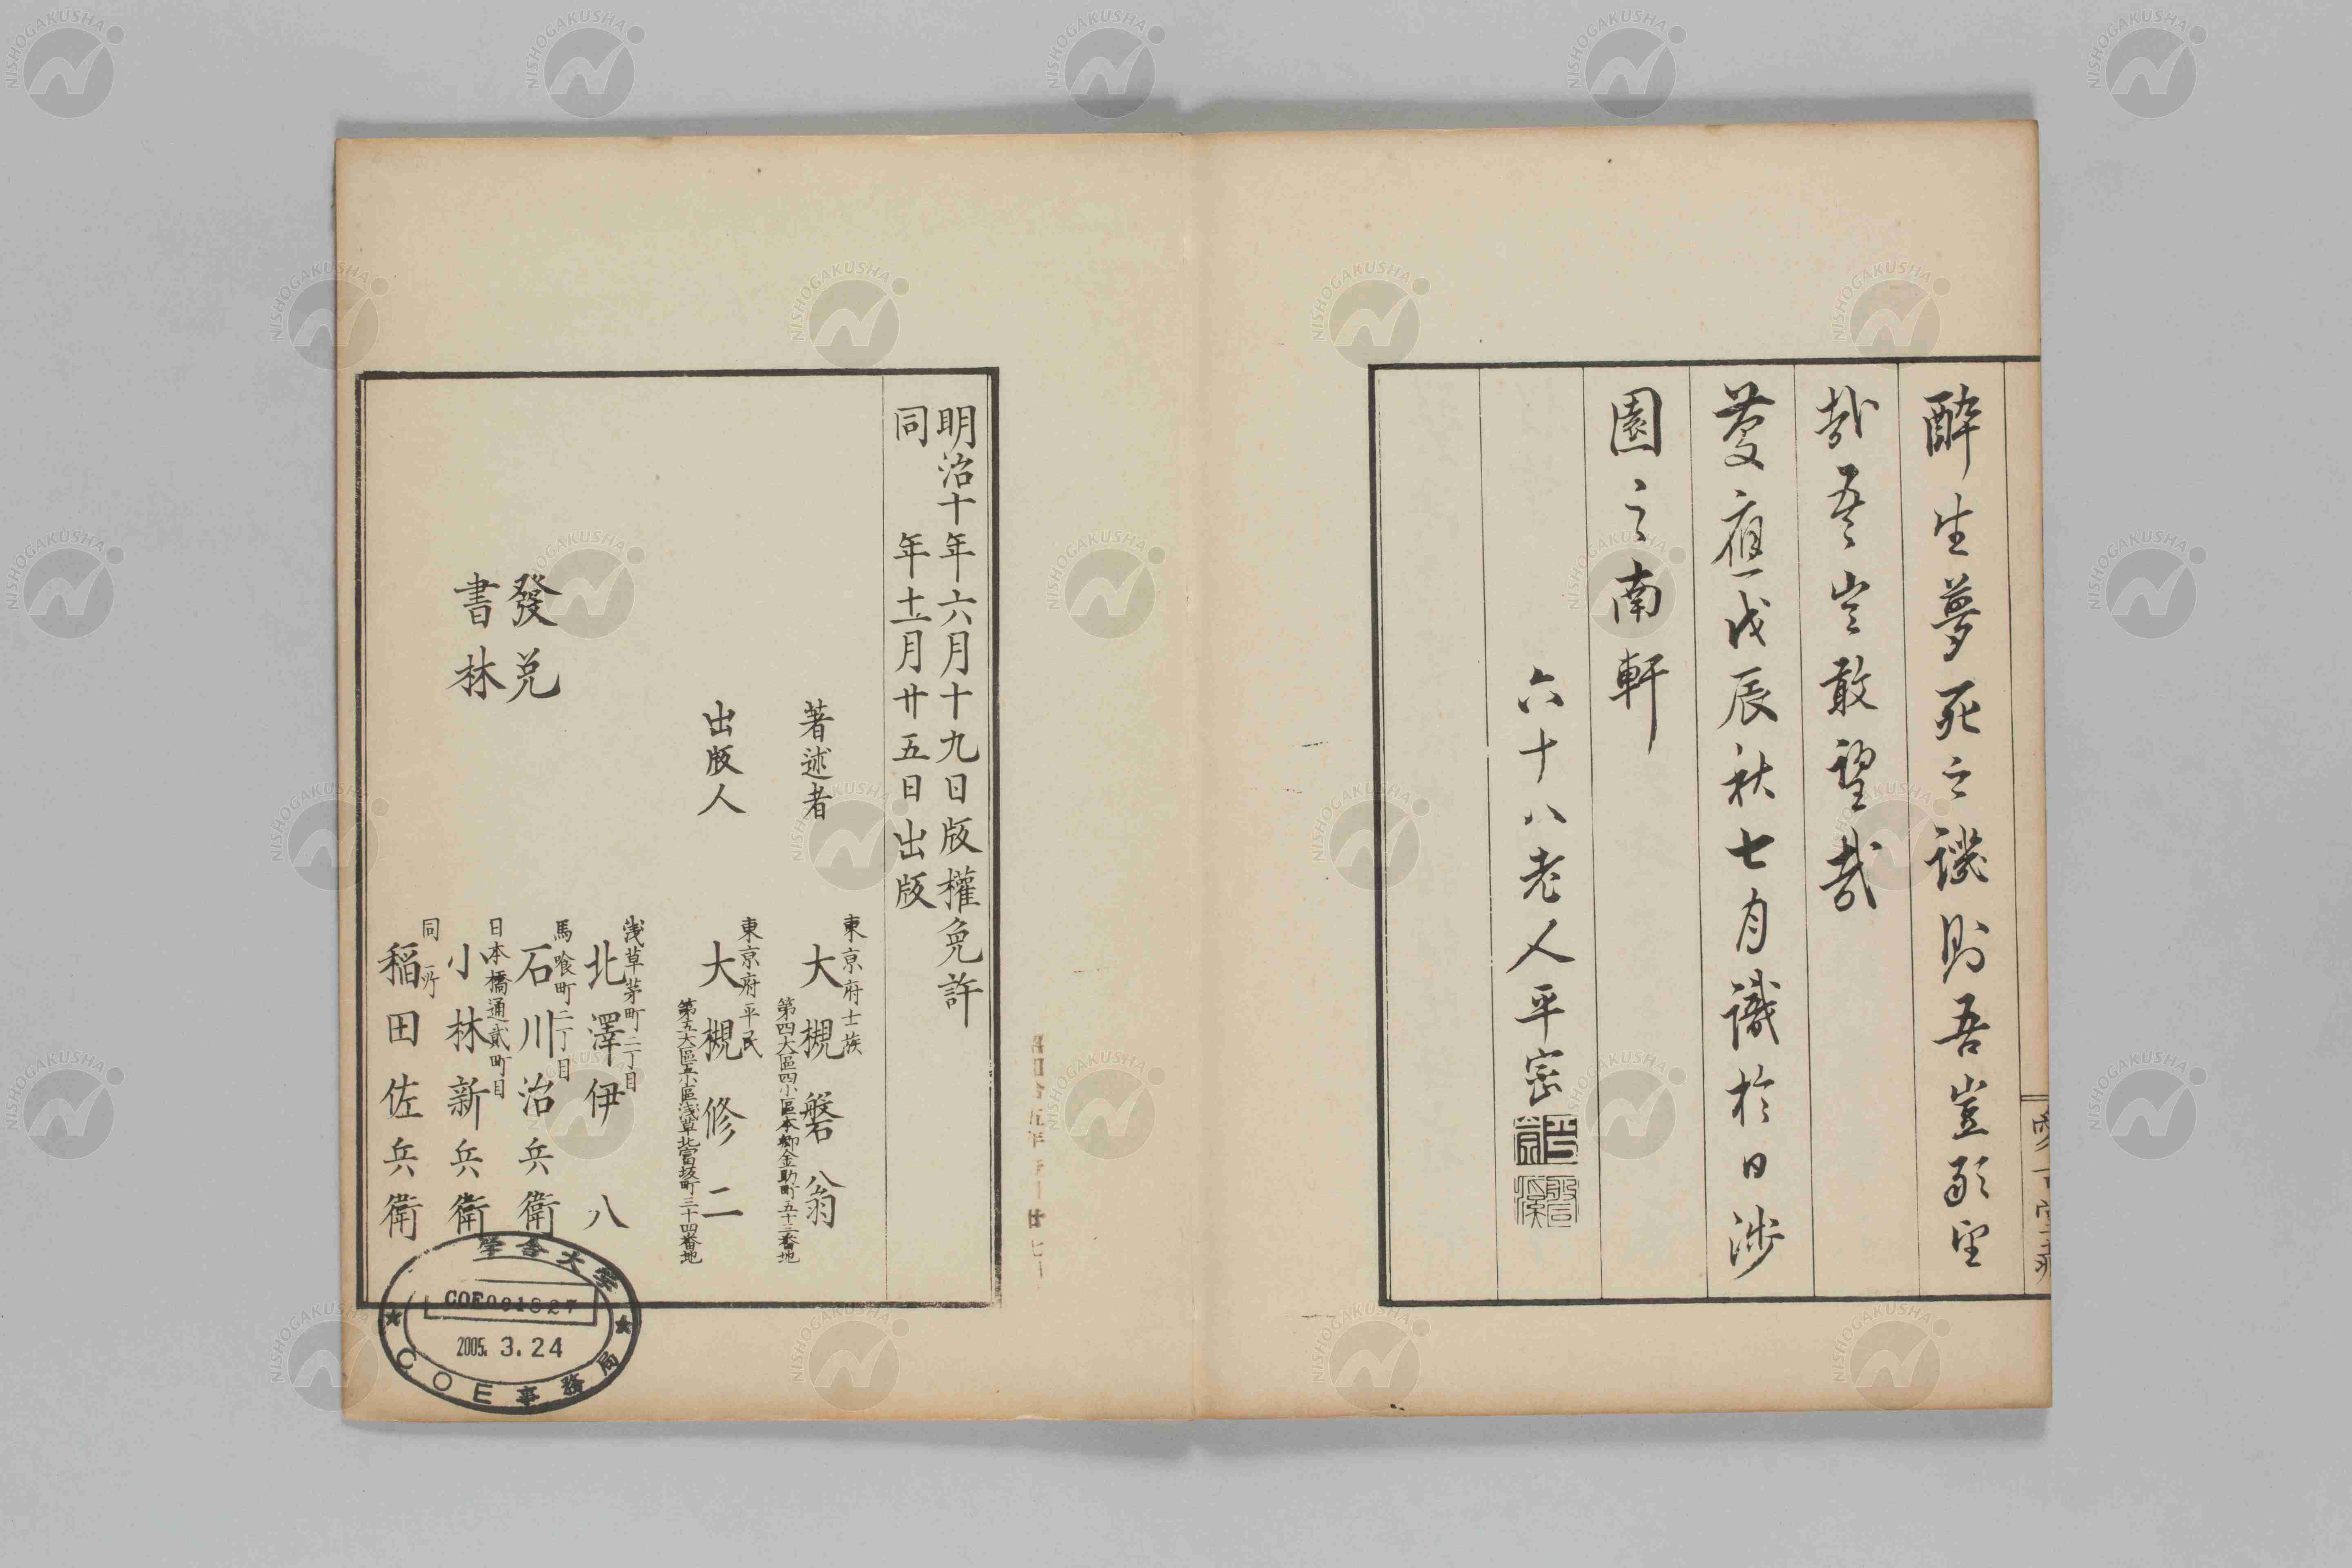 醉生夢死之譏則吾豈敢望
哉吾豈敢望哉
慶應戊辰秋七月識於日渉
園之南軒
六十八老人平崇
明治十年六月十九日版權免許
同年十一月廿五日出版
著述者
東京府士族
大槻磐翁
第四大區四小區本郷金助町五十三番地
出版人
東京府平民
大槻修二
第五大區五小區淺草北富坂町三十四番地
發兌
書林
淺草茅町二丁目
北澤伊八
馬喰町二丁目
石川治兵衛
日本橋通貳町目
小林新兵衛
同所
稲田佐兵衛
学舎大学
COE001827
2005. 3.24
COE事務局
NISHOGAKUSHA